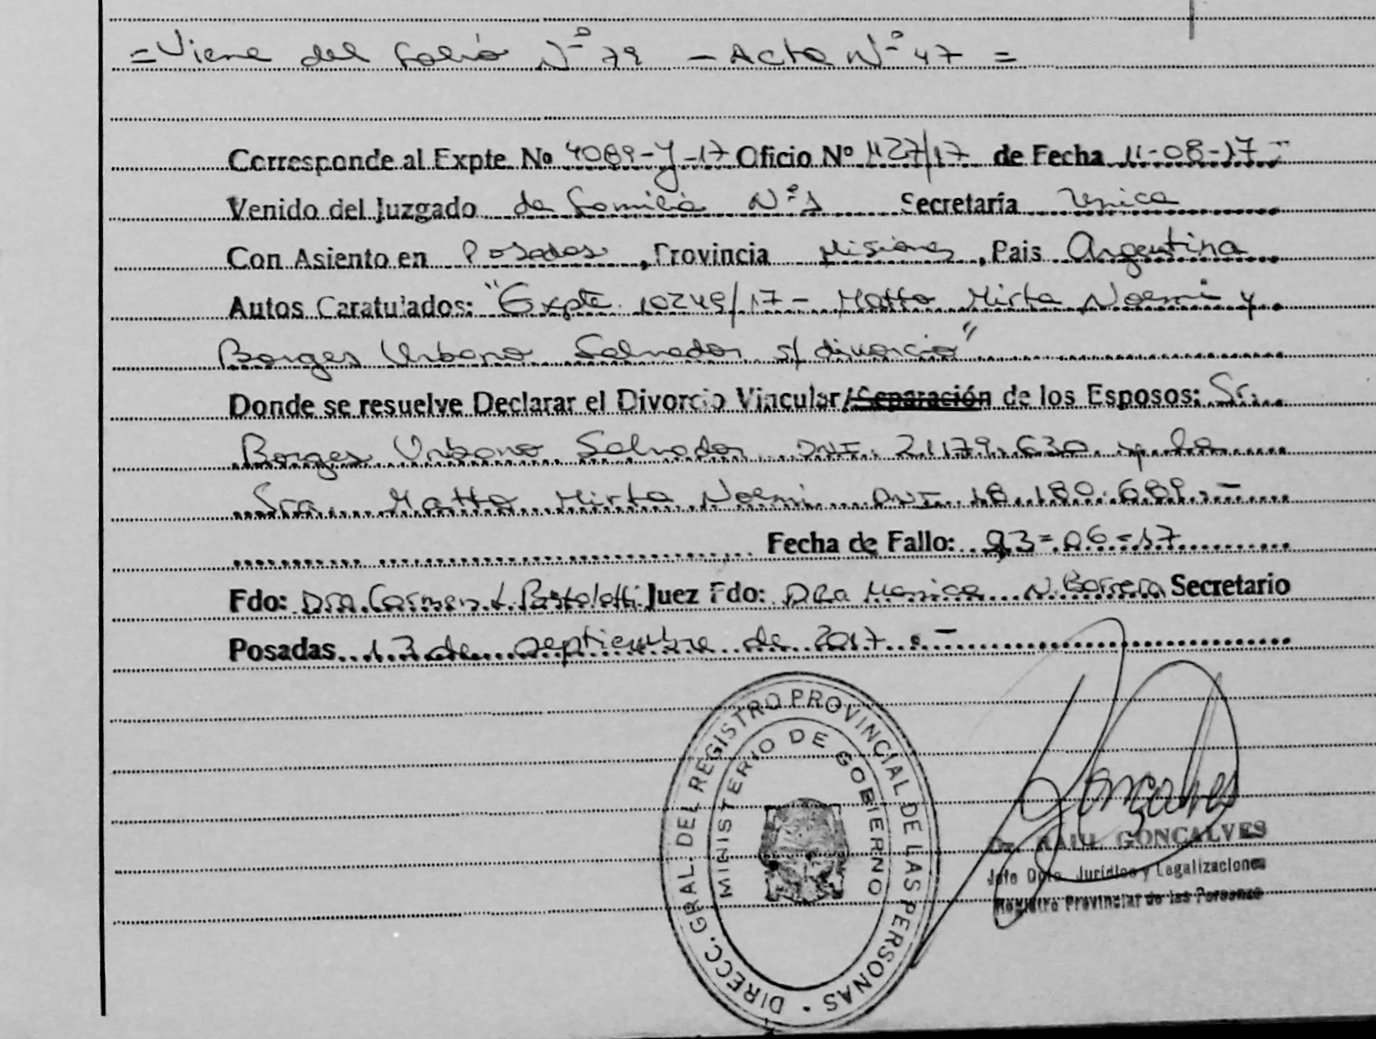 =Viene del folio Nº 79 – Acta Nº 47 =
Corresponde al Expte. Nº 4089-Y-17 Oficio Nº 1127/17 de Fecha 11-08-17-
Venido del Juzgado de Familia Nº1 Secretaría Unica
Con Asiento en Posadas, Provincia Misiones, Pais Argentina
Autos Caratulados: "Expte. 10249/17 - Matto Mirta Noemi y
Borges Urbano Salvador s/ divorcio"
Donde se resuelve Declarar el Divorcio Vincular/Separación de los Esposos: Sr.
Borges Urbano Salvador DNI. 21.179.630 y la
Sra. Matto Mirta Noemi DNI 18.180.689.-
Fecha de Fallo: 23-06-17
Fdo: Dra. Carmen L. Juez Fdo: Dra Monica N. Barrera Secretario
Posadas 13 de septiembre de 2017.-
DIRECC. GRAL. DEL REGISTRO PROVINCIAL DE LAS PERSONAS
MINISTERIO DE GOBIERNO
Gonçalves
Dr. RAUL GONÇALVES
Jefe Dpto. Jurídico y Legalizaciones
Registro Provincial de las Personas